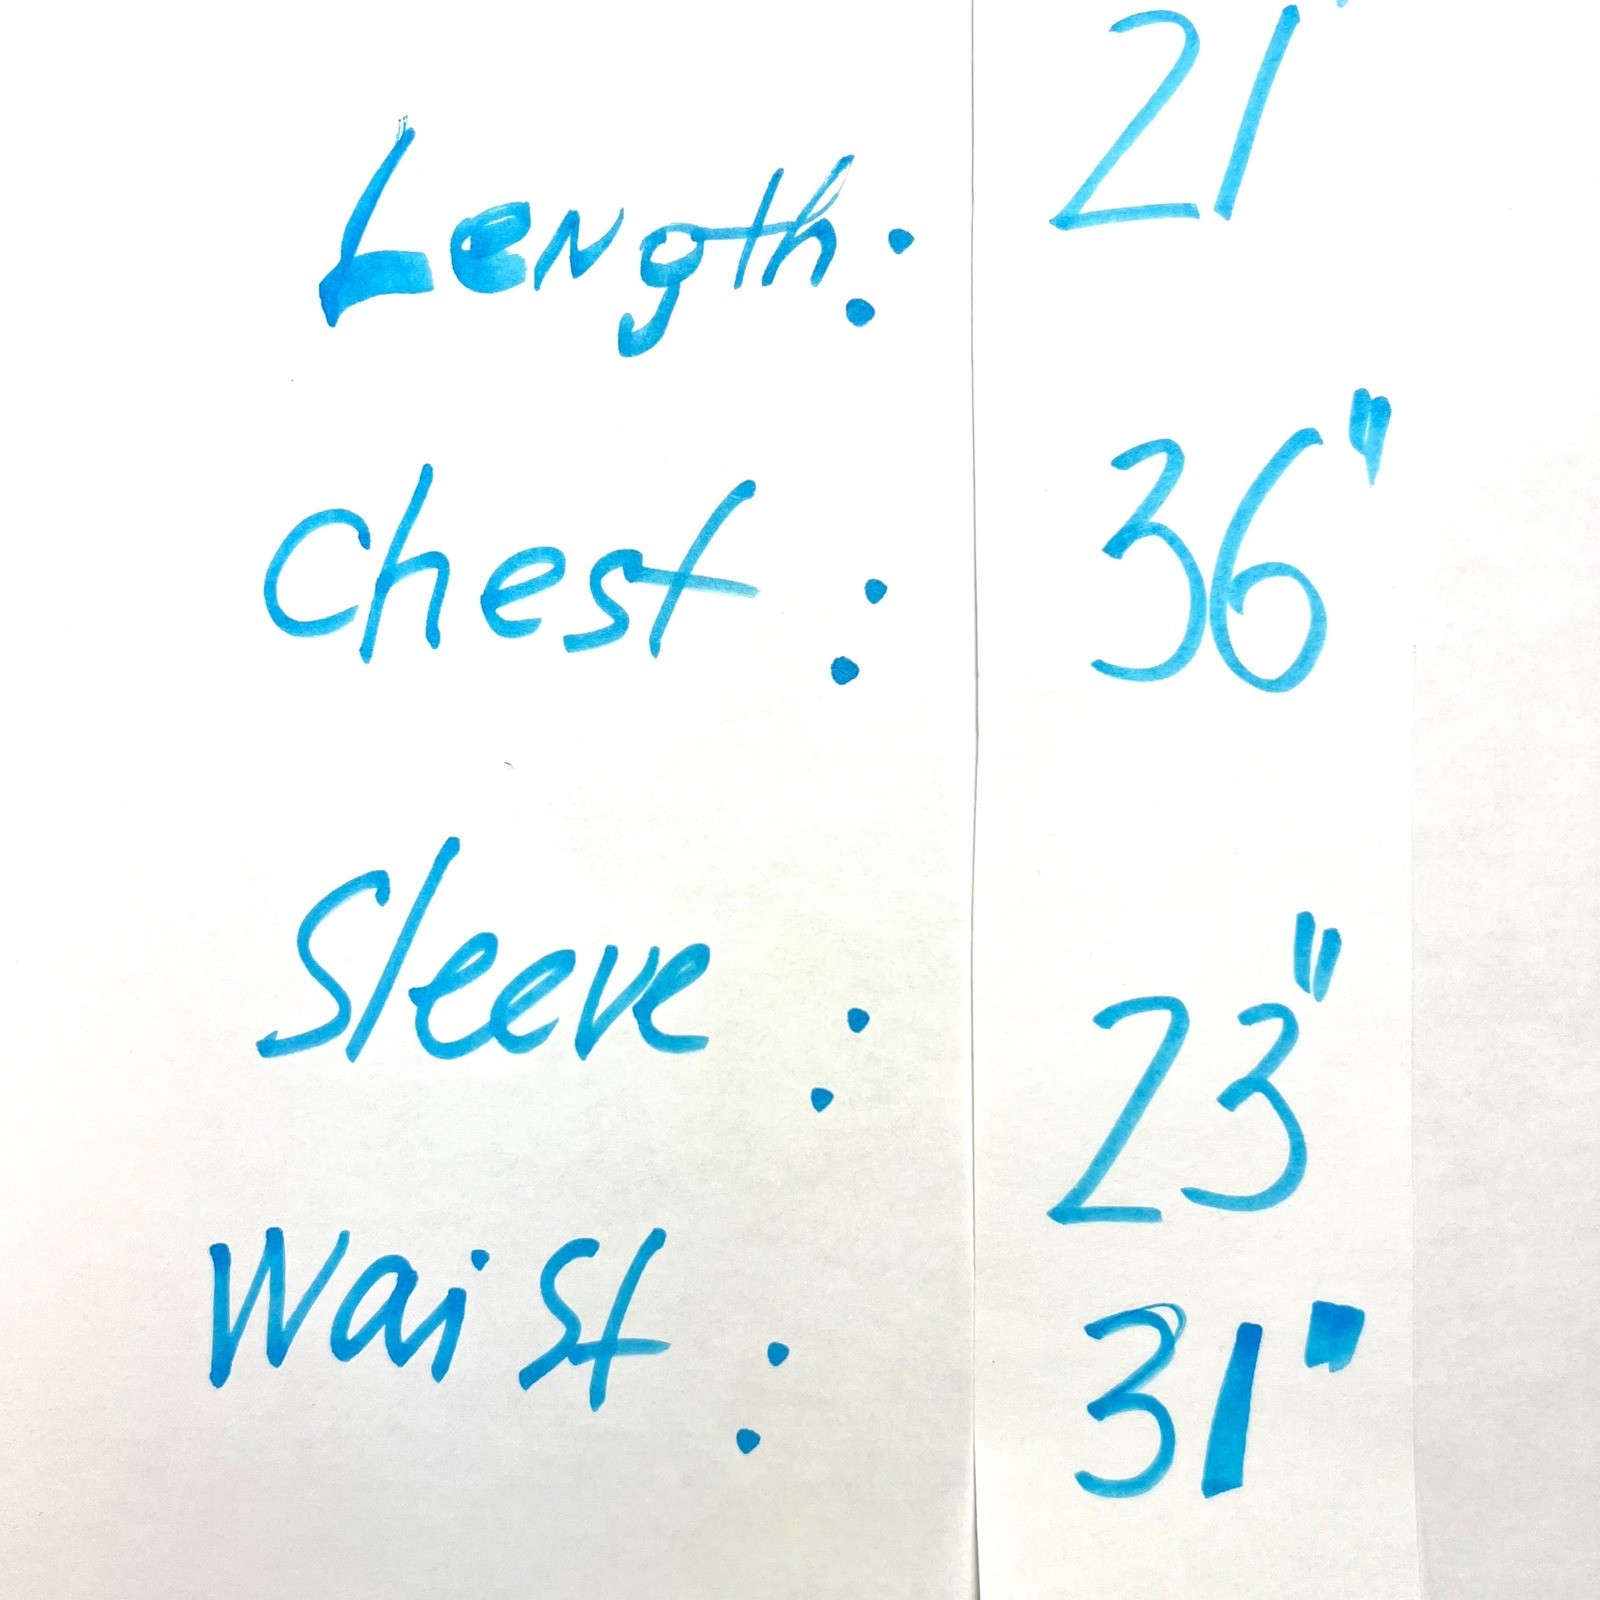 Length: 21"
Chest : 36"
Sleeve : 23"
Waist : 31"